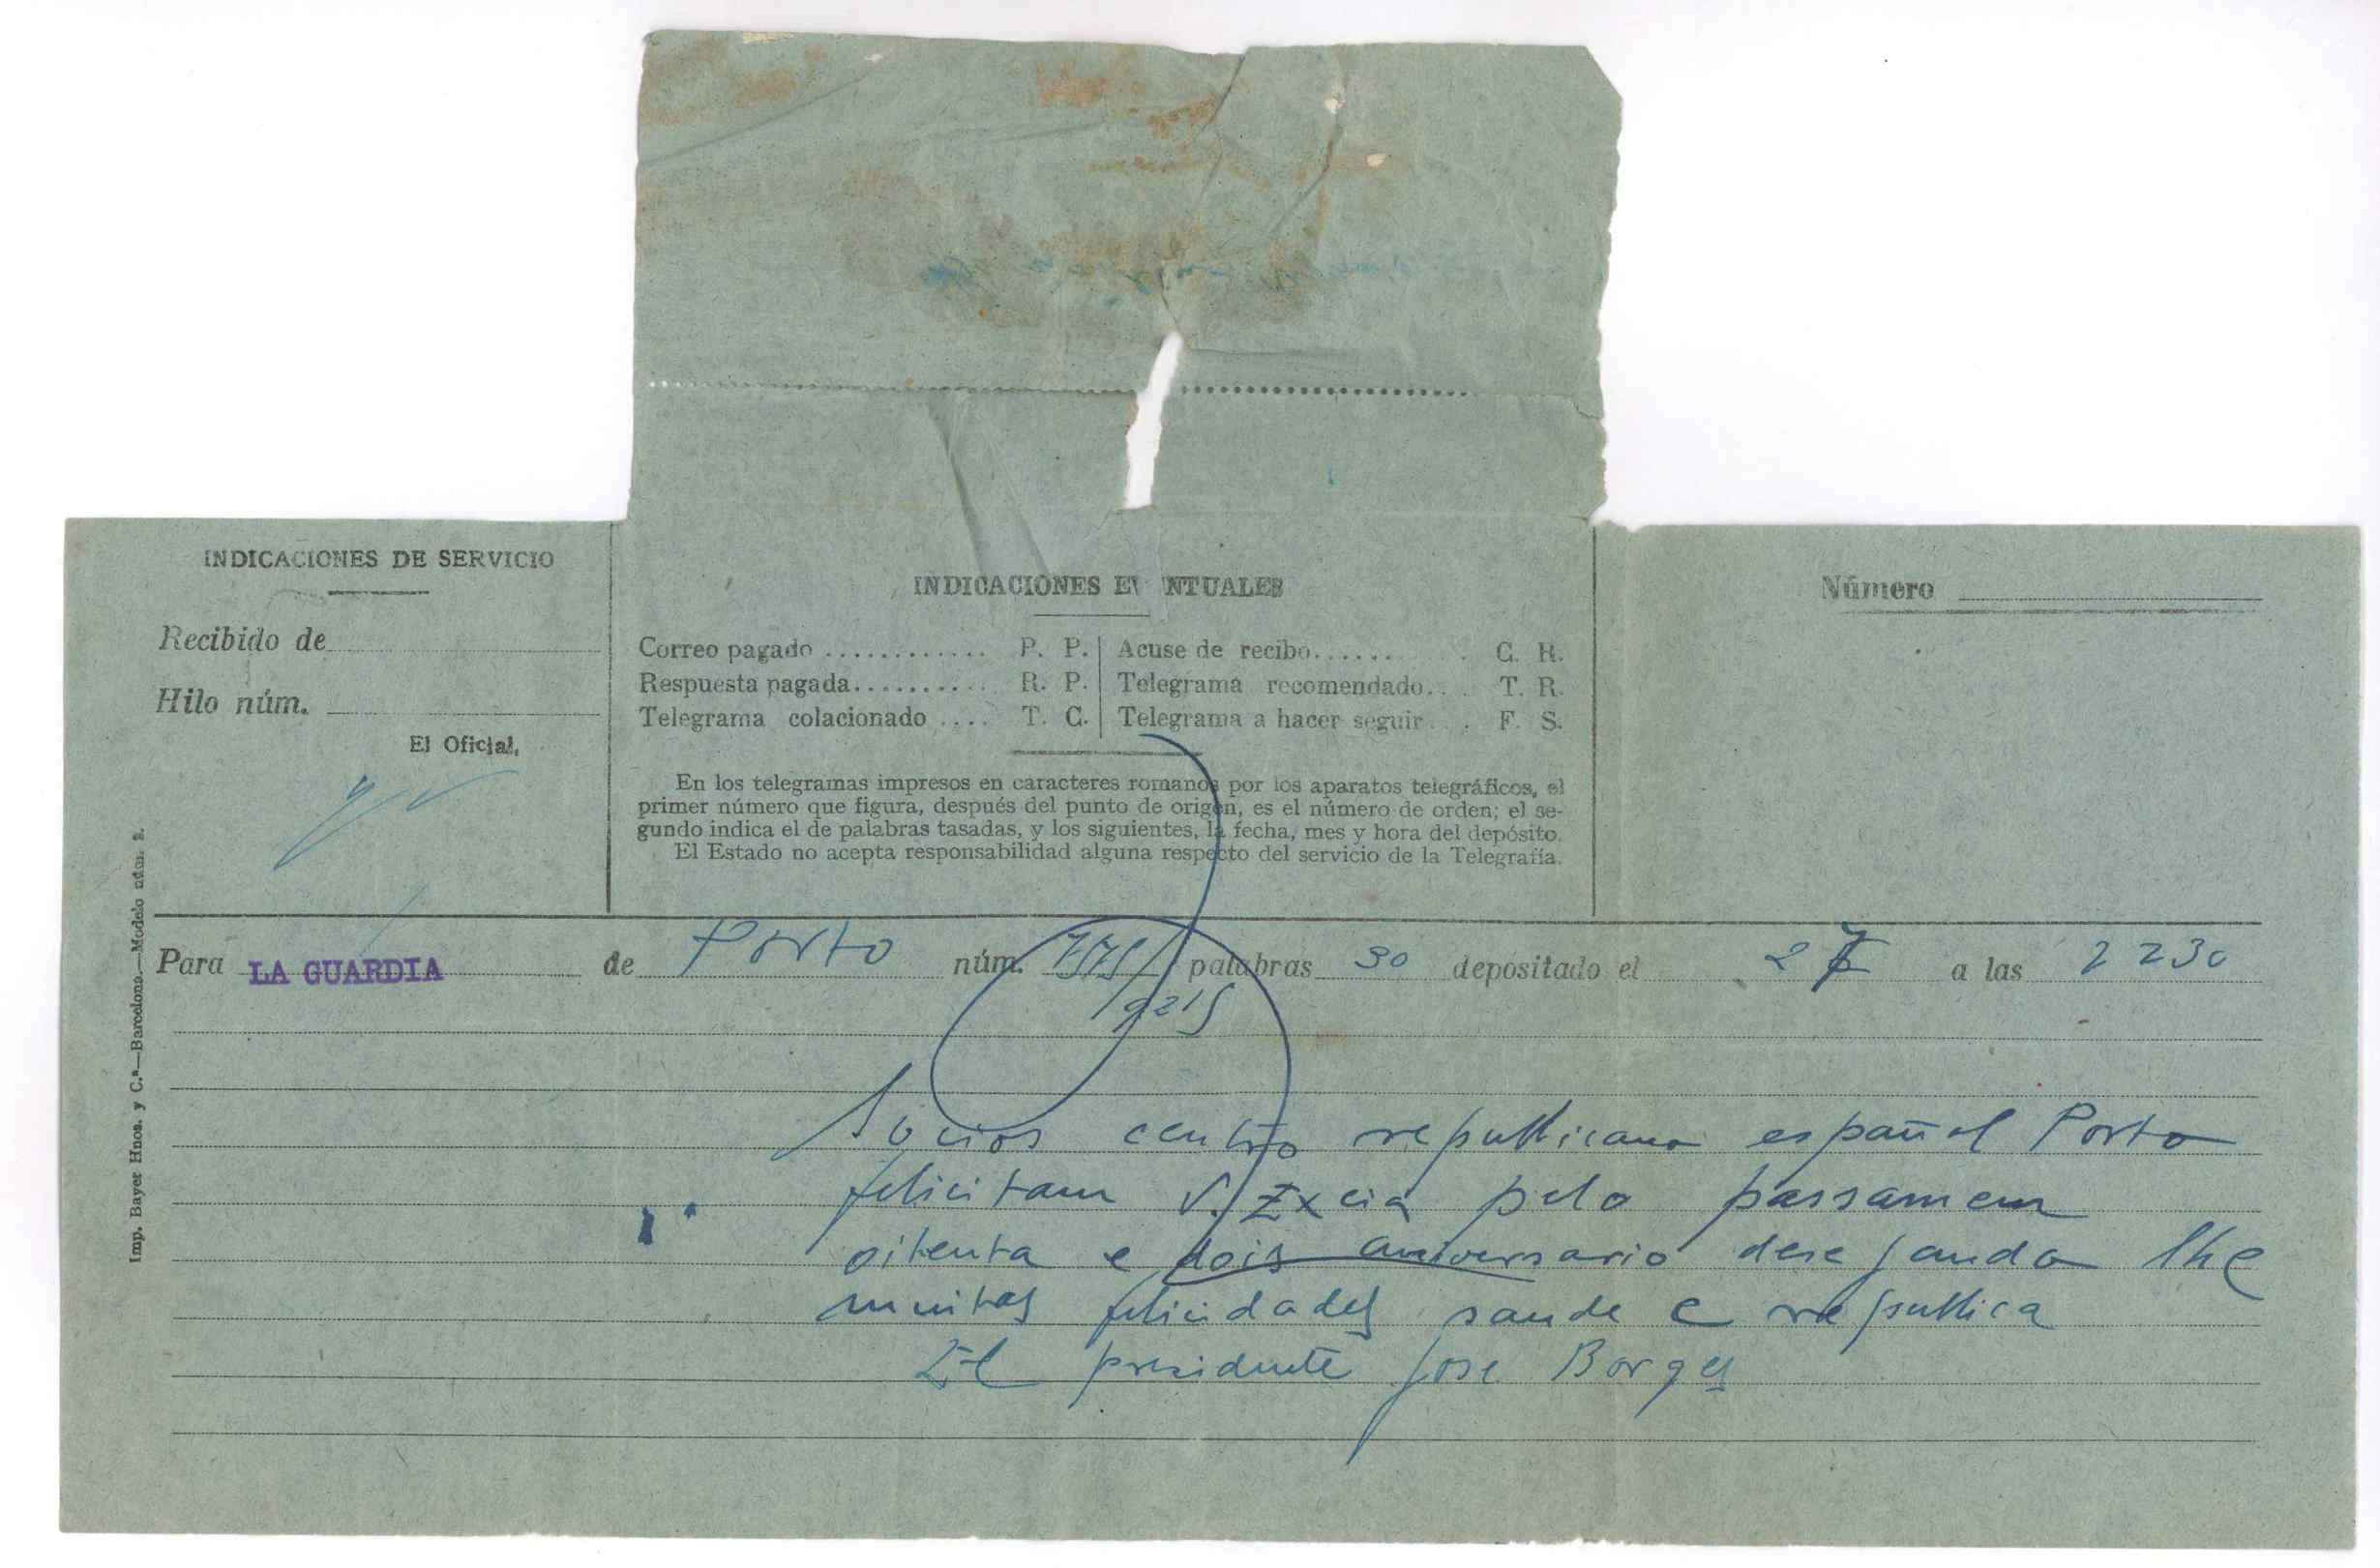 INDICACIONES DE SERVICIO
Recibido de
Hilo núm.
El Oficial,
INDICACIONES EV NTUALES
Correo pagado ............ P. P.
Respuesta pagada.......... R. P.
Telegrama colacionado .... T. C.
Acuse de recibo...... . C. R.
Telegrama recomendado... . T. R.
Telegrama a hacer seguir . . F. S.
En los telegramas impresos en caracteres romanos por los aparatos telegráficos, el
primer número que figura, después del punto de origen, es el número de orden; el se-
gundo indica el de palabras tasadas, y los siguientes, la fecha, mes y hora del depósito.
El Estado no acepta responsabilidad alguna respecto del servicio de la Telegrafía.
Número
Imp. Bayer Hnos. y C.ª—Barcelona.—Modelo núm. 2.
Para LA GUARDIA de Porto núm. palabras 30 depositado el 27 a las 2230
9215
Socios centro republicano español Porto
felicitam V. Excia pelo passamem
oitenta e dois aniversario desejando lhe
muitas felicidades saude e republica
El presidente Jose Borges